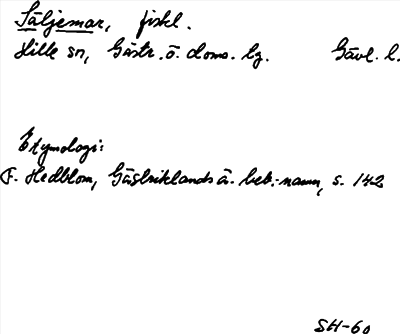 Säljemar, fiskl.
Hille sn, Gästr. ö. doms. hg. Gävl. l.
Etymologi:
F. Hedblom, Gästriklands ä. beb.-namn, s. 142
SH-60